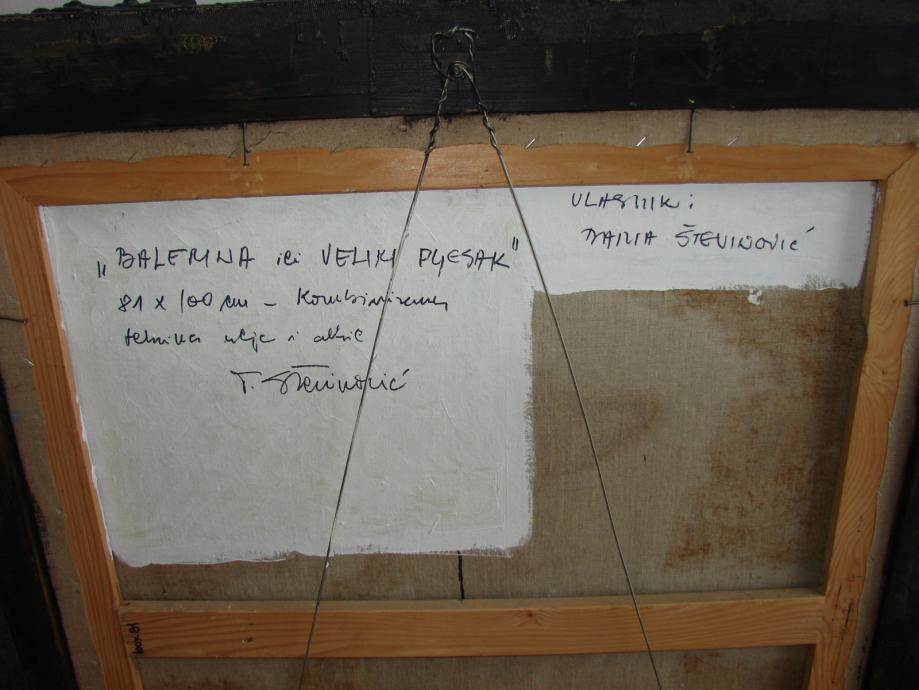 „BALERINA ili VELIKI PLJESAK"
81 x 100 cm – Kombinirana
tehnika ulje i akril
T. Števinović
VLASNIK:
DARIA ŠTEVINOVIĆ